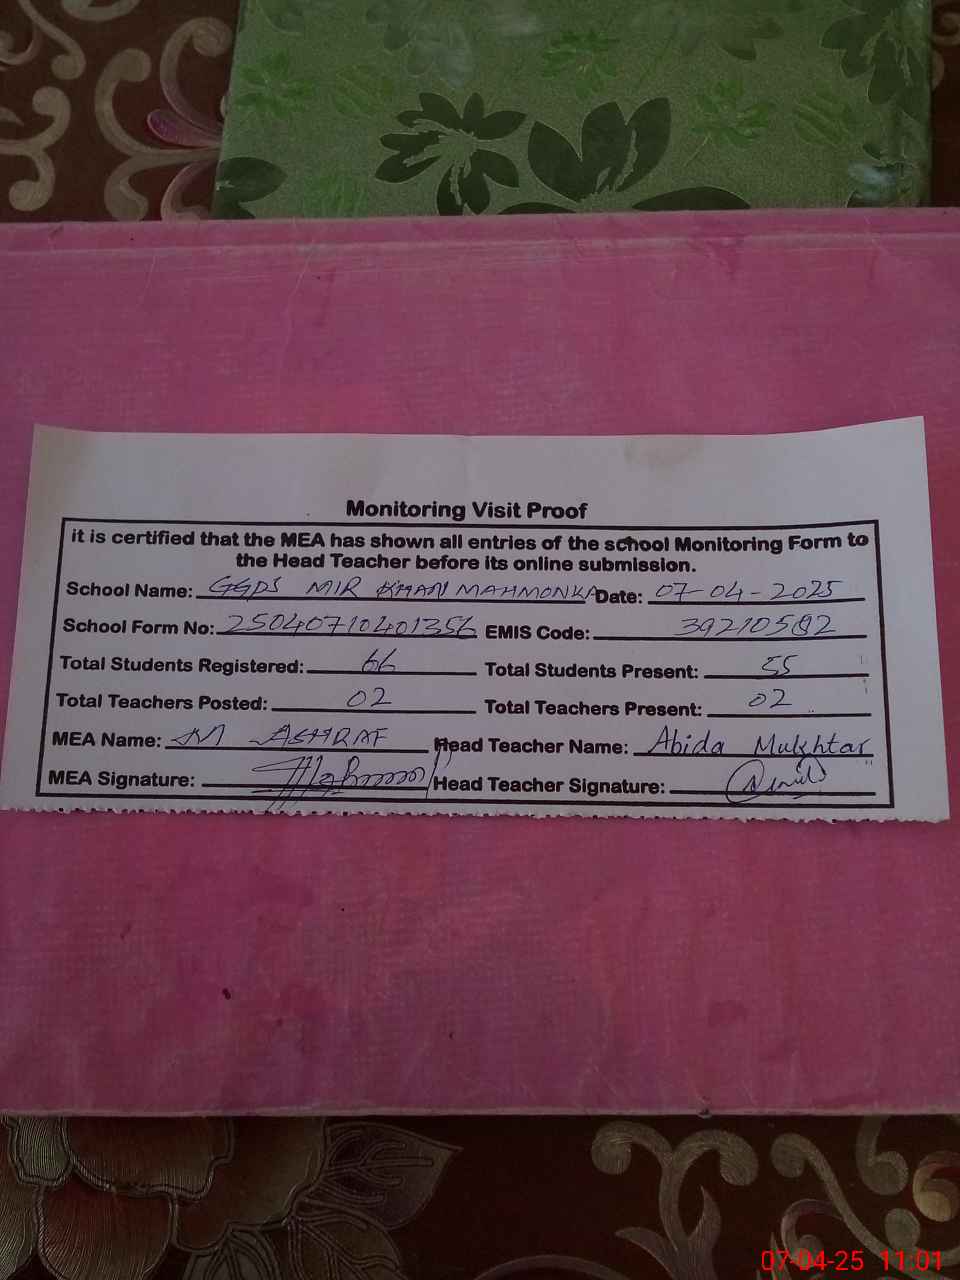 Monitoring Visit Proof
it is certified that the MEA has shown all entries of the school Monitoring Form to
the Head Teacher before its online submission.
School Name: GGPS MIR KHAN MAHMONKA Date: 07-04-2025
School Form No: 25040710401356 EMIS Code: 39210582
Total Students Registered: 66 Total Students Present: 55
Total Teachers Posted: 02 Total Teachers Present: 02
MEA Name: M ASHRAF Head Teacher Name: Abida Mukhtar
MEA Signature: Head Teacher Signature:
07-04-25 11:01